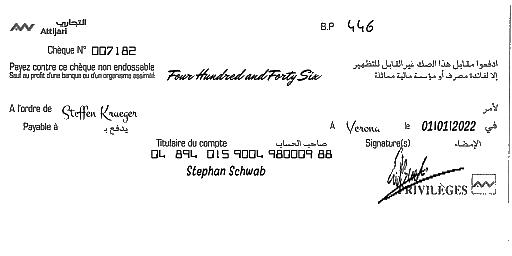 التجاري
Attijari
B.P 446
Chèque N° 007182
Payez contre ce chèque non endossable
Sauf au profit d'une banque ou d'un organisme assimilé
Four Hundred and Forty Six
ادفعوا مقابل هذا الصك غير القابل للتظهير
إلا لفائدة مصرف أو مؤسسة مالية مماثلة
A l'ordre de Steffen Krueger
لأمر
Payable à يدفع بـ
A Verona le 01/01/2022 في
Titulaire du compte صاحب الحساب
Signature(s) الإمضاء
04 894 015 9004 980009 88
Stephan Schwab
PRIVILÈGES